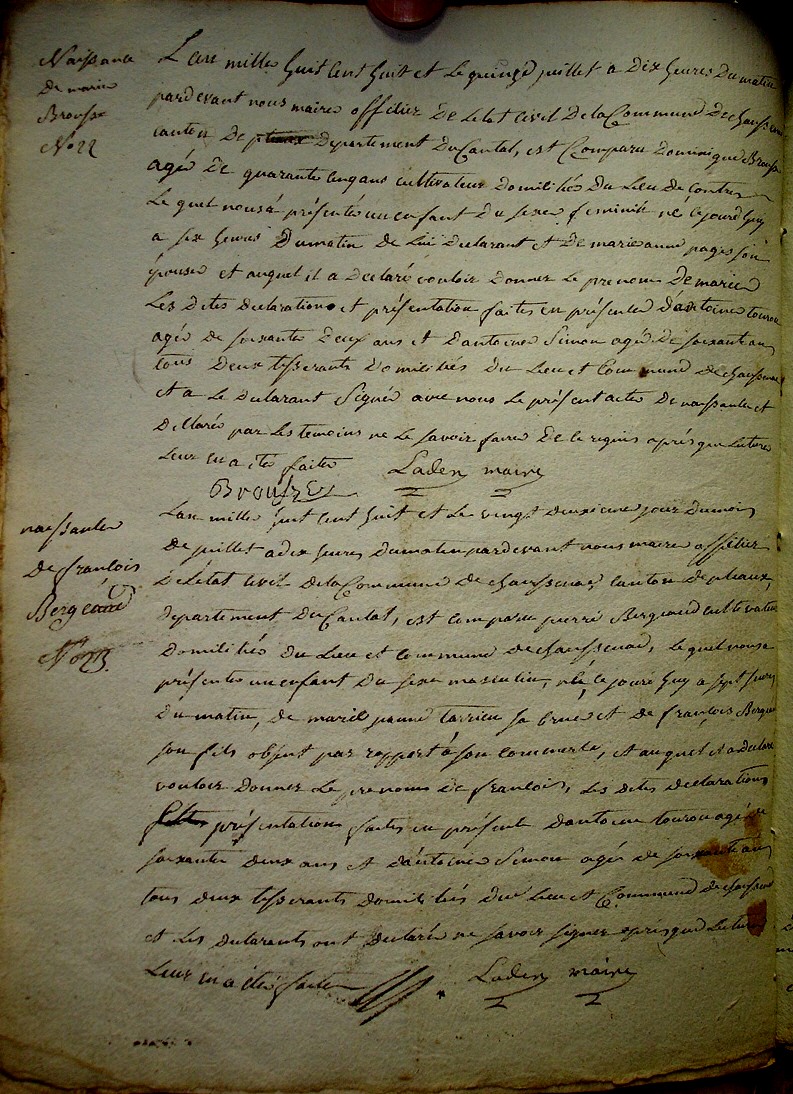 Naissance
De marie
Brousse
No 22
L'an mille huit cent huit et le quinze juillet a Dix heures Du matin
pardevant nous maire officier De letat civil Dela Commune De chaussenac
canton De Departement Du Cantal, est Comparu Dominique Brousse
agé De quarante cinq ans cultivateur Domicilié Du Lieu De Contres
Le quel nous a présenté un enfant Du sexe feminin né ce jourd'huy
a six heures Du matin De Lui Declarant et De marieanne pages son
épouse et auquel il a Declaré vouloir Donner Le prenom De marie
Les Dites Declaration et présentation faites en présence D'antoine tourou
agé De soixante Deux ans et Dantoine Simon agé De soixante ans
tous Deux tisserants Domiciliés Du Lieu et Commune De chaussenac
et a Le Declarant Signé avec nous Le présent acte De naissance et
Declaré par Les temoins ne Le savoir faire De ce requis aprés que Lecture
Leur en a été faite Laden maire
Brousse
naissance
De francois
Bergeaud
No 23
Lan mille huit cent huit et Le vingt Deuxieme jour Du mois
De juillet a dix heures Du matin pardevant nous maire officier
De Létat civil Dela Commune De chaussenac canton De pleaux,
Departement Du Cantal, est comparu pierre Bergeaud cultivateur
Domicilié Du Lieu et commune De chaussenac, Le quel nous a
présenté un enfant Du sexe masculin, né ce jourd huy a sept heures
Du matin, de marie jeanne tarrieu sa brue et de françois Bergeaud
son fils absent par rapport à son commerce, et auquel il a declaré
vouloir Donner Le prenom De francois, Les Dites Declarations
présentations faites en présence Dantoine tourou agé De
soixante Deux ans et D'antoine Simon agé De soixante ans
tous Deux tisserants Domiciliés Du Lieu et Commune De chaussenac
et Les Declarants ont Declaré ne savoir signer aprés que Lecture
Leur en a été faite Laden maire